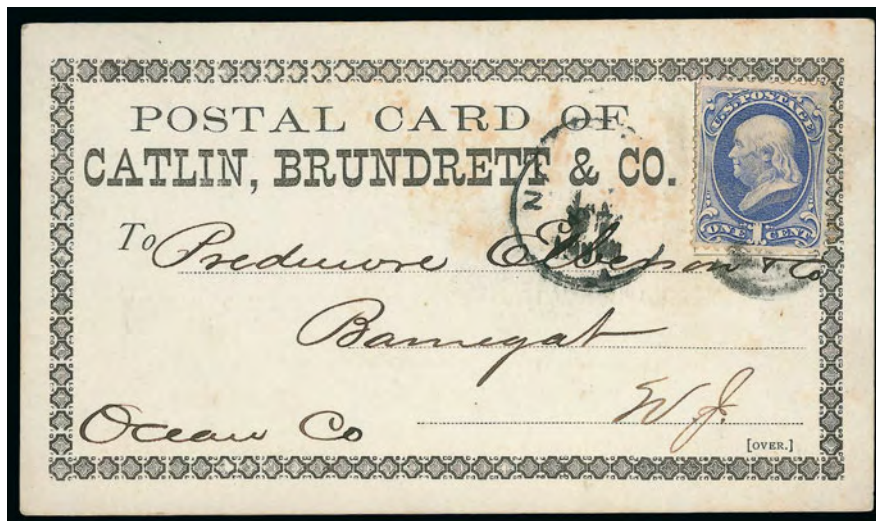 POSTAL CARD OF
CATLIN, BRUNDRETT & CO.
U.S. POSTAGE
ONE 1 CENT
N
To Predmore & Co
Barnegat
N.J.
Ocean Co
[OVER.]